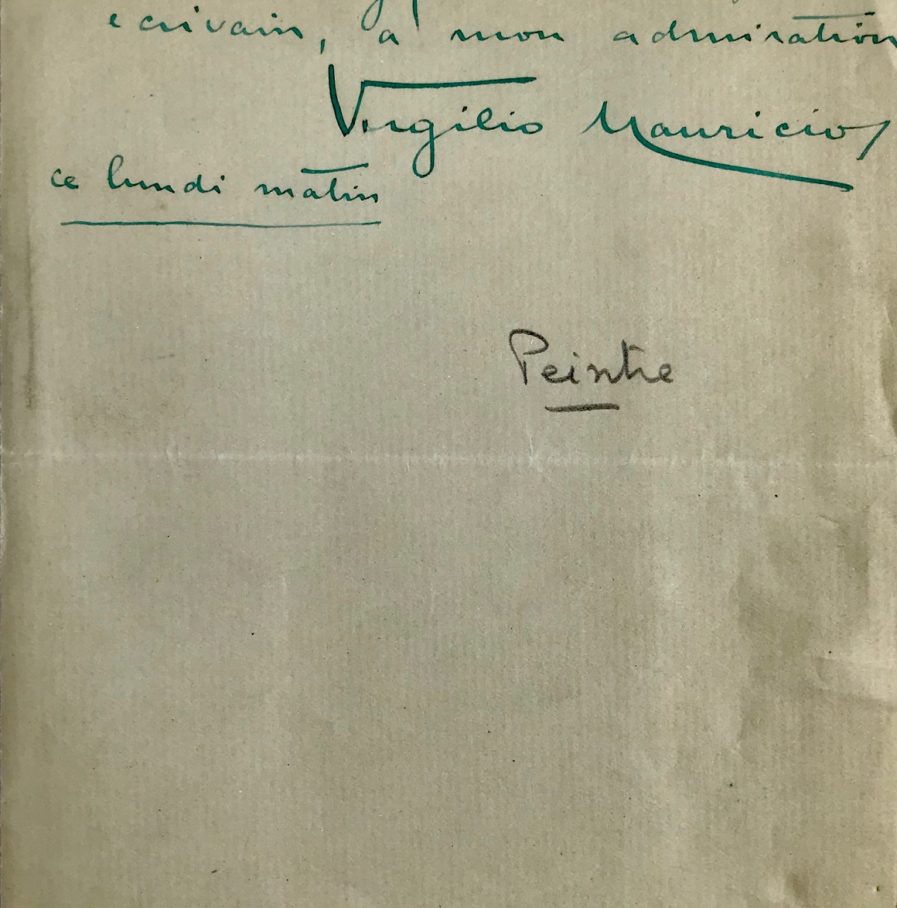 écrivain, à mon admiration
Virgilio Mauricio
ce lundi matin
Peintre